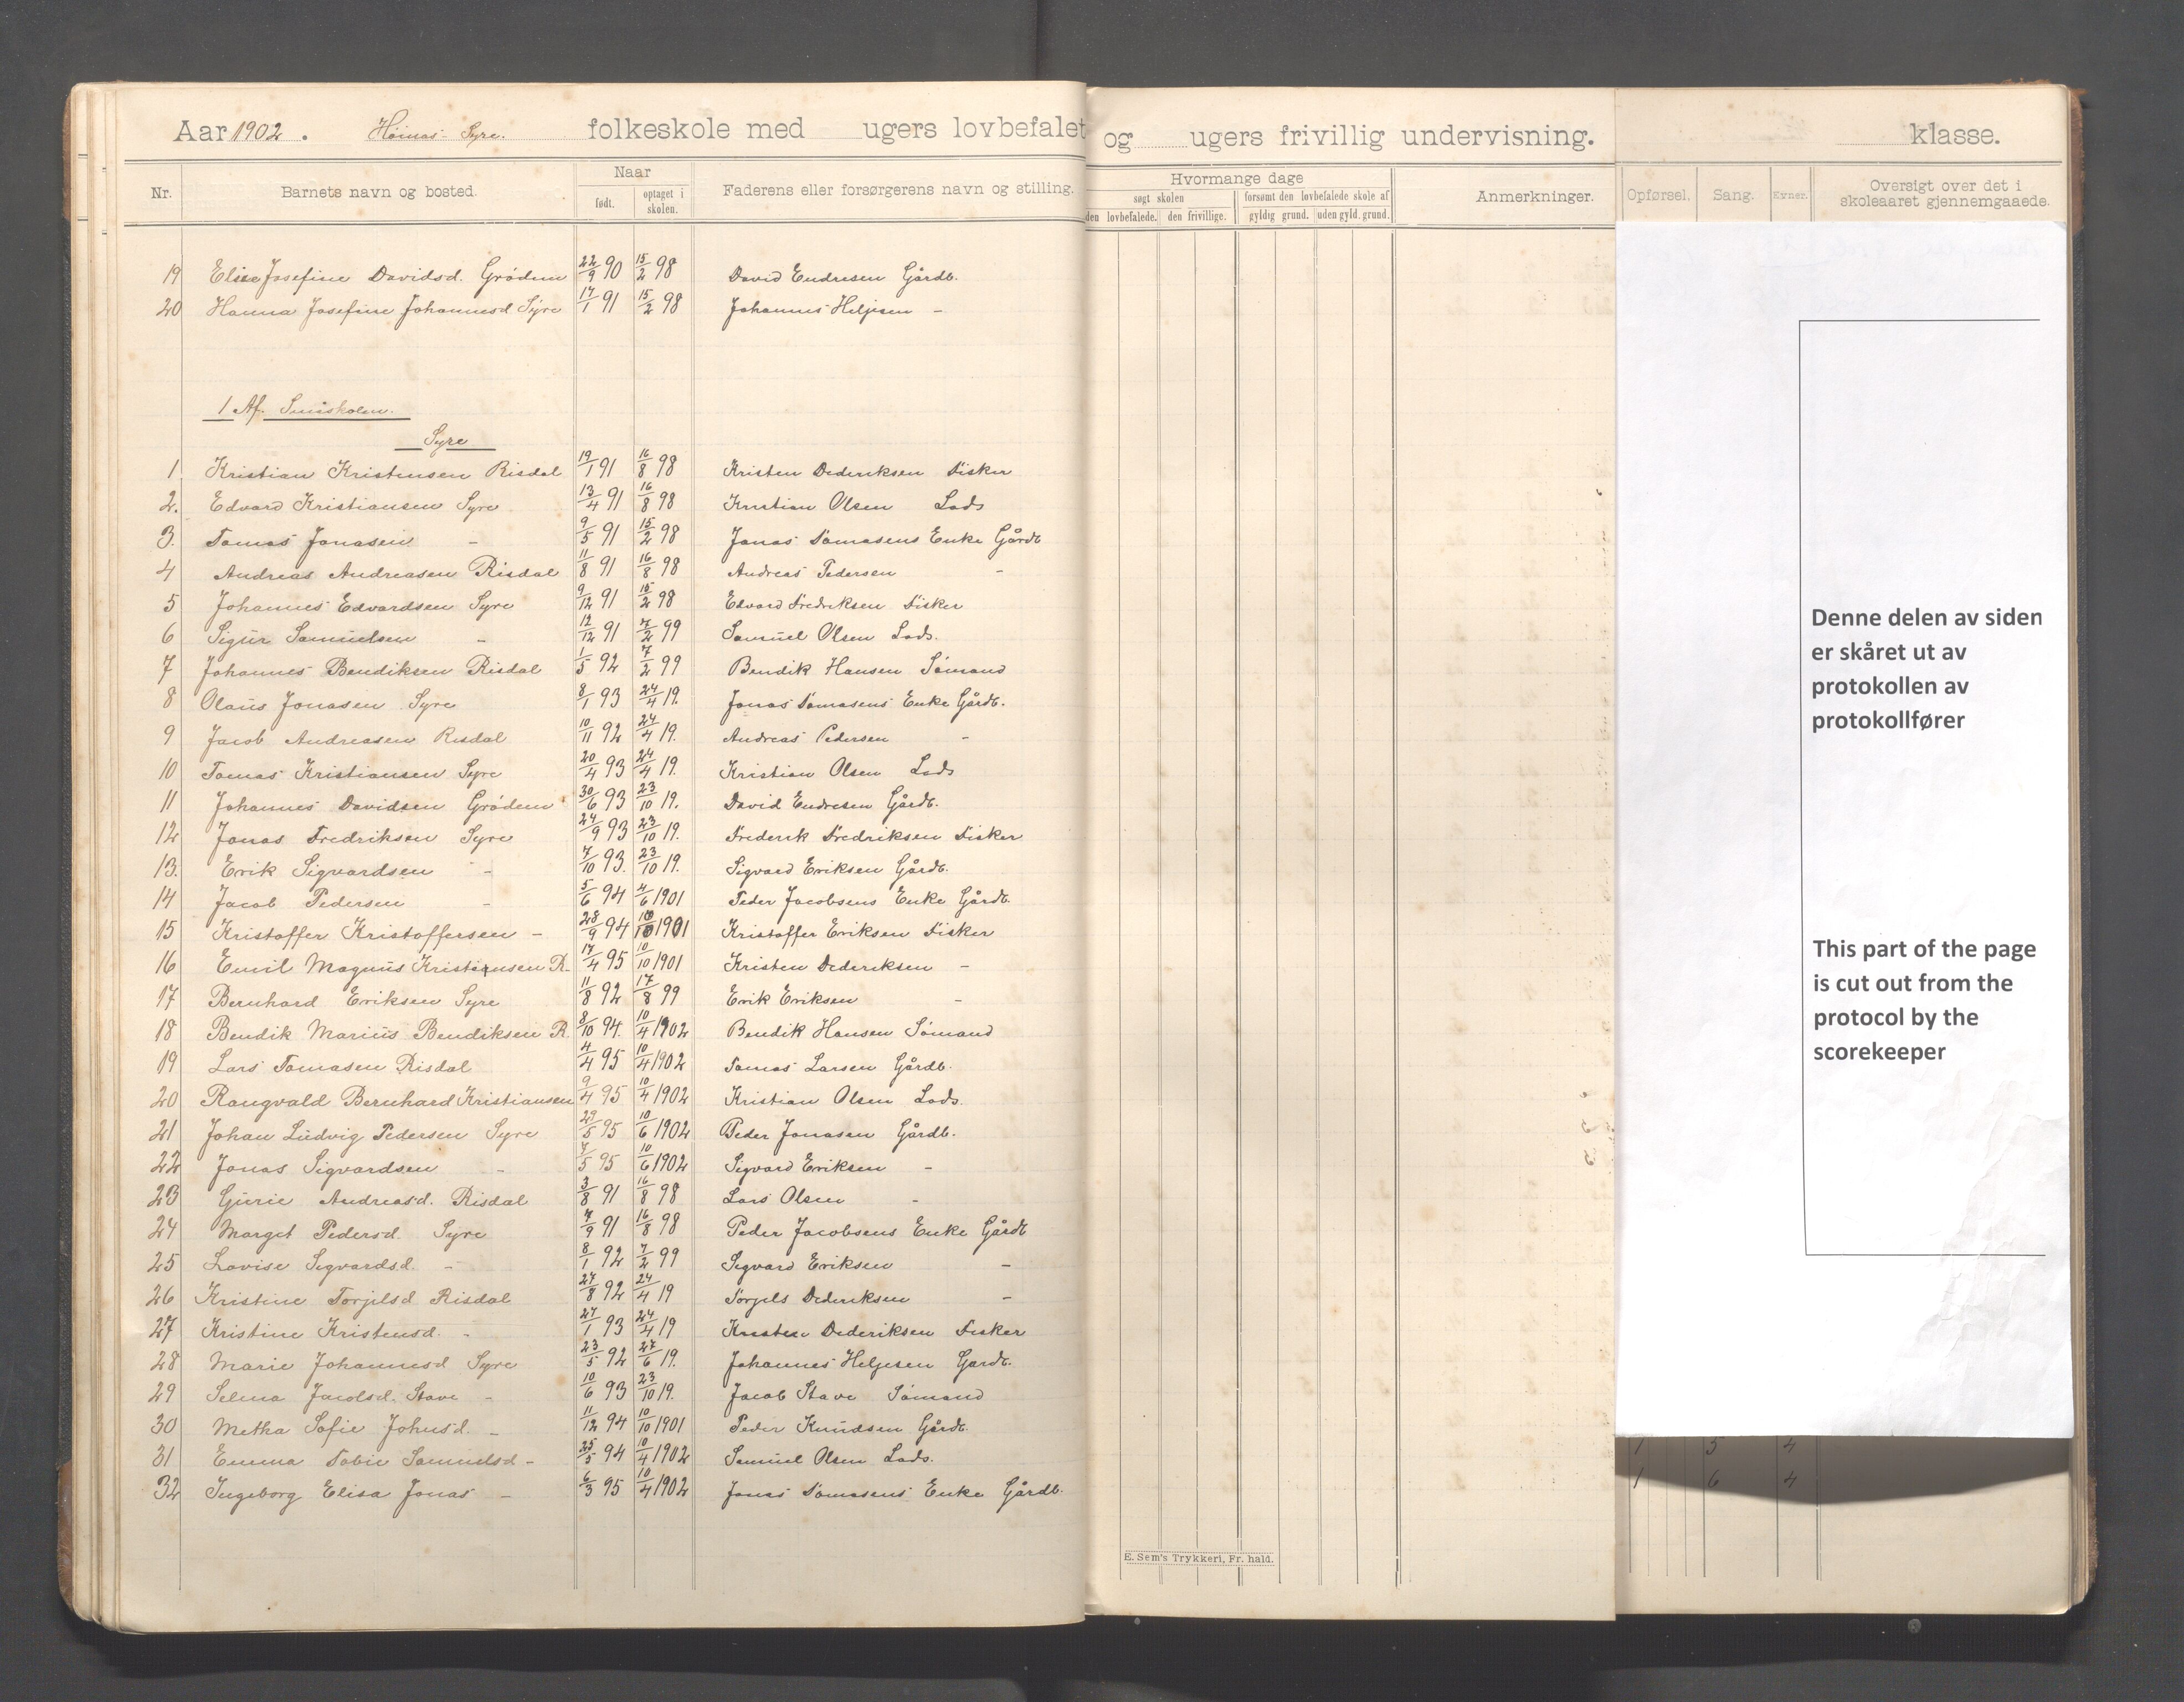 Aar 1902. Høinæs Syre. folkeskole med ugers lovbefalet og ugers frivillig undervisning. klasse.
Nr. Barnets navn og bosted. Naar født. optaget i skolen. Faderens eller forsørgerens navn og stilling. Hvormange dage søgt skolen den lovbefalede. den frivillige. forsømt den lovbefalede skole af gyldig grund. uden gyld. grund. Anmerkninger. Opførsel. Sang. Evner. Oversigt over det i skoleaaret gjennemgaaede.
19 Elise Josefine Davidsd. Grödem 22/9 90 15/2 98 David Endresen Gårdb.
20 Hanna Josefine Johannesd Syre 17/1 91 15/2 98 Johannes Heljesen -
1 Af. Småskolen.
Syre
1 Kristian Kristensen Risdal 19/1 91 16/8 98 Kristen Dederiksen Fisker
2. Edvard Kristiansen Syre 13/4 91 16/8 98 Kristian Olsen Lods
3. Tomas Jonasen - 9/5 91 15/2 98 Jonas Tomasens Enke Gårdb
4 Andreas Andreasen Risdal 11/8 91 16/8 98 Andreas Pedersen -
5 Johannes Edvardsen Syre 9/12 91 15/2 98 Edvard Fredriksen Fisker
6 Sigur Samuelsen - 12/12 91 7/2 99 Samuel Olsen Lods.
7 Johannes Bendiksen Risdal 1/5 92 7/2 99 Bendik Hansen Sömand
8 Olaus Jonasen Syre 8/1 93 24/4 19. Jonas Tomasens Enke Gårdb.
9 Jacob Andreasen Risdal 10/11 92 24/4 19. Andreas Pedersen -
10 Tomas Kristiansen Syre 20/4 93 24/4 19. Kristian Olsen Lods
11 Johannes Davidsen Grödem 30/6 93 23/10 19. David Endresen Gårdb.
12 Jonas Fredriksen Syre 24/9 93 23/10 19. Frederik Fredriksen Fisker
13. Erik Sigvardsen - 7/10 93. 23/10 19. Sigvard Eriksen Gårdb.
14 Jacob Pedersen - 5/6 94 4/6 1901 Peder Jacobsens Enke Gårdb.
15 Kristoffer Kristoffersen - 28/9 94 10/10 1901 Kristoffer Eriksen Fisker
16 Emil Magnus Kristensen R. 17/4 95 10/10 1901 Kristen Dederiksen -
17 Bernhard Eriksen Syre 11/8 92 17/8 99 Erik Eriksen -
18 Bendik Marius Bendiksen R. 8/10 94. 10/4 1902 Bendik Hansen Sömand
19 Lars Tomasen Risdal 4/4 95 10/4 1902 Tomas Larsen Gårdb.
20 Rangvald Bernhard Kristiansen 9/4 95 10/4 1902 Kristian Olsen Lods.
21 Johan Ludvig Pedersen Syre 29/5 95 10/6 1902 Peder Jonasen Gårdb.
22 Jonas Sigvardsen - 7/5 95 10/6 1902 Sigvard Eriksen -
23 Gurie Andreasd. Risdal 3/8 91 16/8 98 Lars Olsen -
24 Marget Pedersd. Syre 7/9 91 16/8 98 Peder Jacobsens Enke Gårdb
25 Lovise Sigvardsd. - 8/1 92 7/2 99 Sigvard Eriksen -
26 Kristine Torjelsd Risdal 27/8 92 24/4 19 Torjels Dederiksen -
27 Kristine Kristensd. - 27/1 93 24/4 19 Kristen Dederiksen Fisker
28 Marie Johannesd Syre 23/5 92 27/6 19. Johannes Heljesen Gardb.
29 Selma Jacobsd. Stave - 10/6 93 23/10 19. Jacob Stave Sömand
30 Metha Sofie Johnsd. - 11/12 94 10/10 1901 Peder Knudsen Gårdb.
31 Emma Tobie Samuelsd - 25/5 94 10/4 1902 Samuel Olsen Lods.
32 Ingeborg Elisa Jonas - 6/3 95 10/4 1902 Jonas Tomasens Enke Gårdb.
E. Sem's Trykkeri, Fr. hald.
Denne delen av siden
er skåret ut av
protokollen av
protokollfører
This part of the page
is cut out from the
protocol by the
scorekeeper
1 5 4
1 6 4